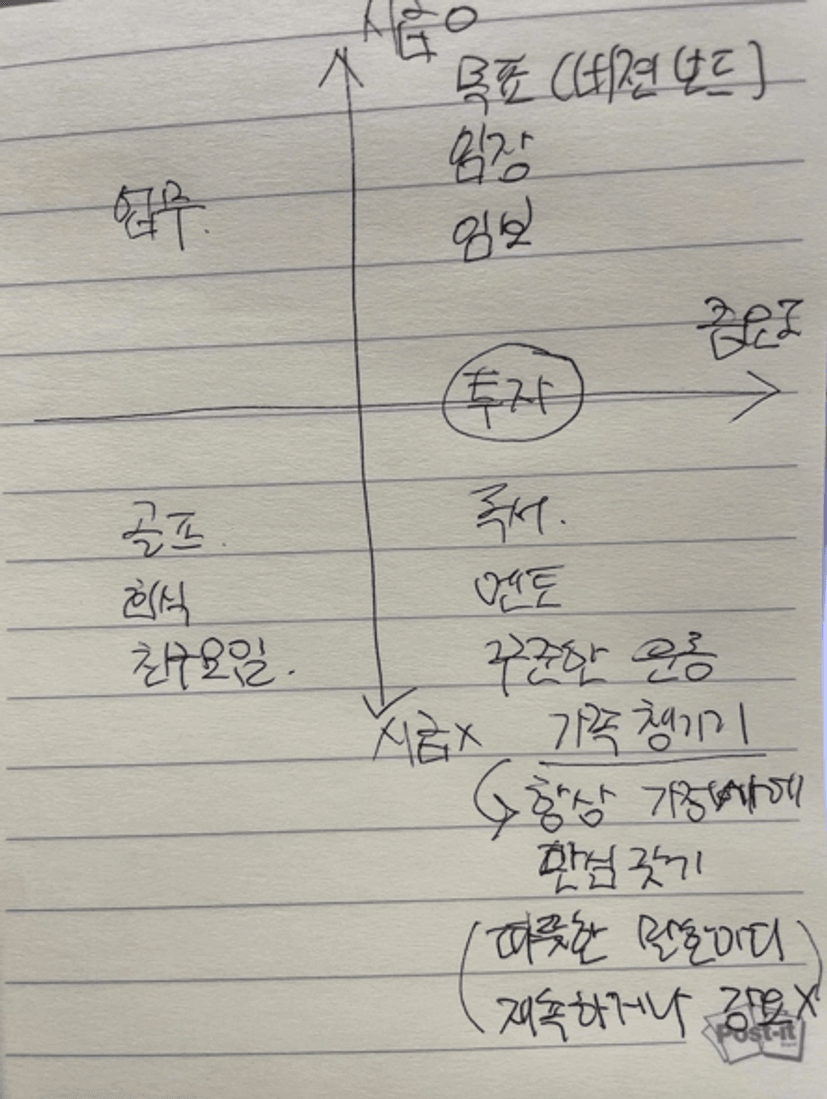 시급 O
목표 (비젼 보드)
임장
임보
업무.
중요도
투자
골프.
회식
친구모임.
독서.
멘토
꾸준한 운동
시급X
가족 챙기기
항상 가정사에
관심 갖기
(따뜻한 말한마디
재촉하거나 강요X)
Post-it